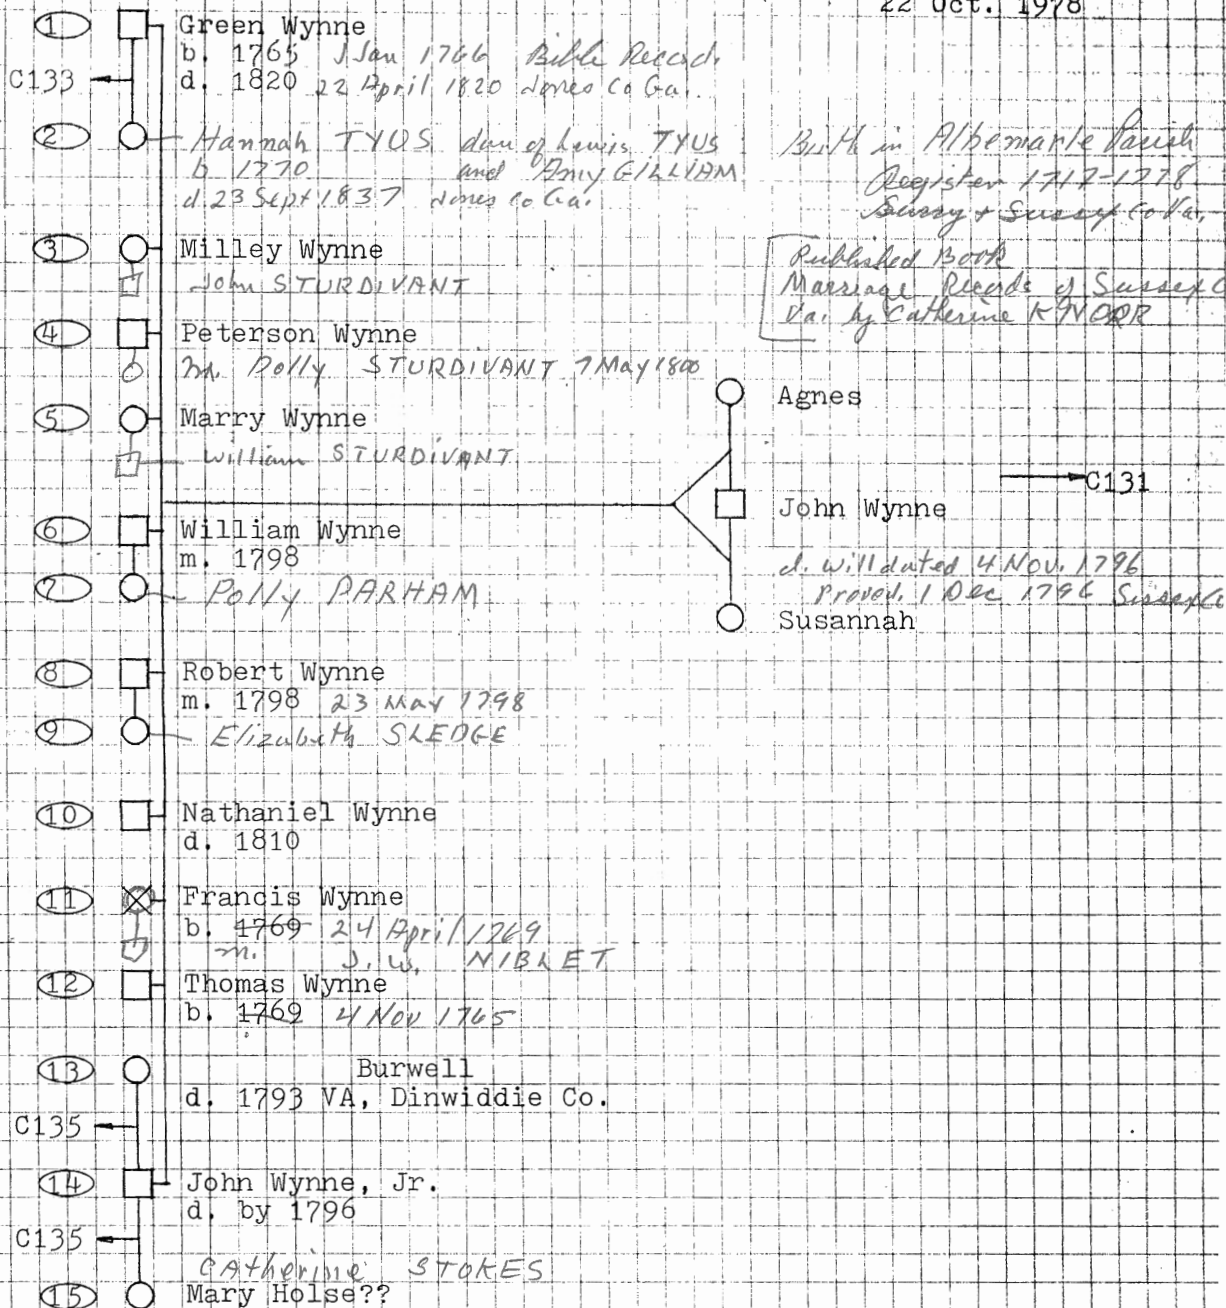 22 Oct. 1978
1 Green Wynne
b. 1765 1 Jan 1766 Bible Record.
C133
d. 1820 22 April 1820 Jones Co Ga.
2 Hannah TYUS dau of Lewis TYUS
b 1770 and Amy GILLIAM
d 23 Sept 1837 Jones Co Ga.
Birth in Albemarle Parish
Register 1717-1778
Surry + Sussex Co Va.
3 Milley Wynne
John STURDIVANT
Published Book
Marriage Records of Sussex C
Va. by Catherine KNORR
4 Peterson Wynne
m. Polly STURDIVANT 7 May 1800
5 Marry Wynne
William STURDIVANT
Agnes
C131
John Wynne
d. will dated 4 Nov. 1796
Proved. 1 Dec 1796 Sussex Co
Susannah
6 William Wynne
m. 1798
7 Polly PARHAM
8 Robert Wynne
m. 1798 23 May 1798
9 Elizabeth SLEDGE
10 Nathaniel Wynne
d. 1810
11 Francis Wynne
b. 1769 24 April 1769
m. J. W. NIBLET
12 Thomas Wynne
b. 1769 4 Nov 1765
13 Burwell
d. 1793 VA, Dinwiddie Co.
C135
14 John Wynne, Jr.
d. by 1796
C135
Catherine STOKES
15 Mary Holse??